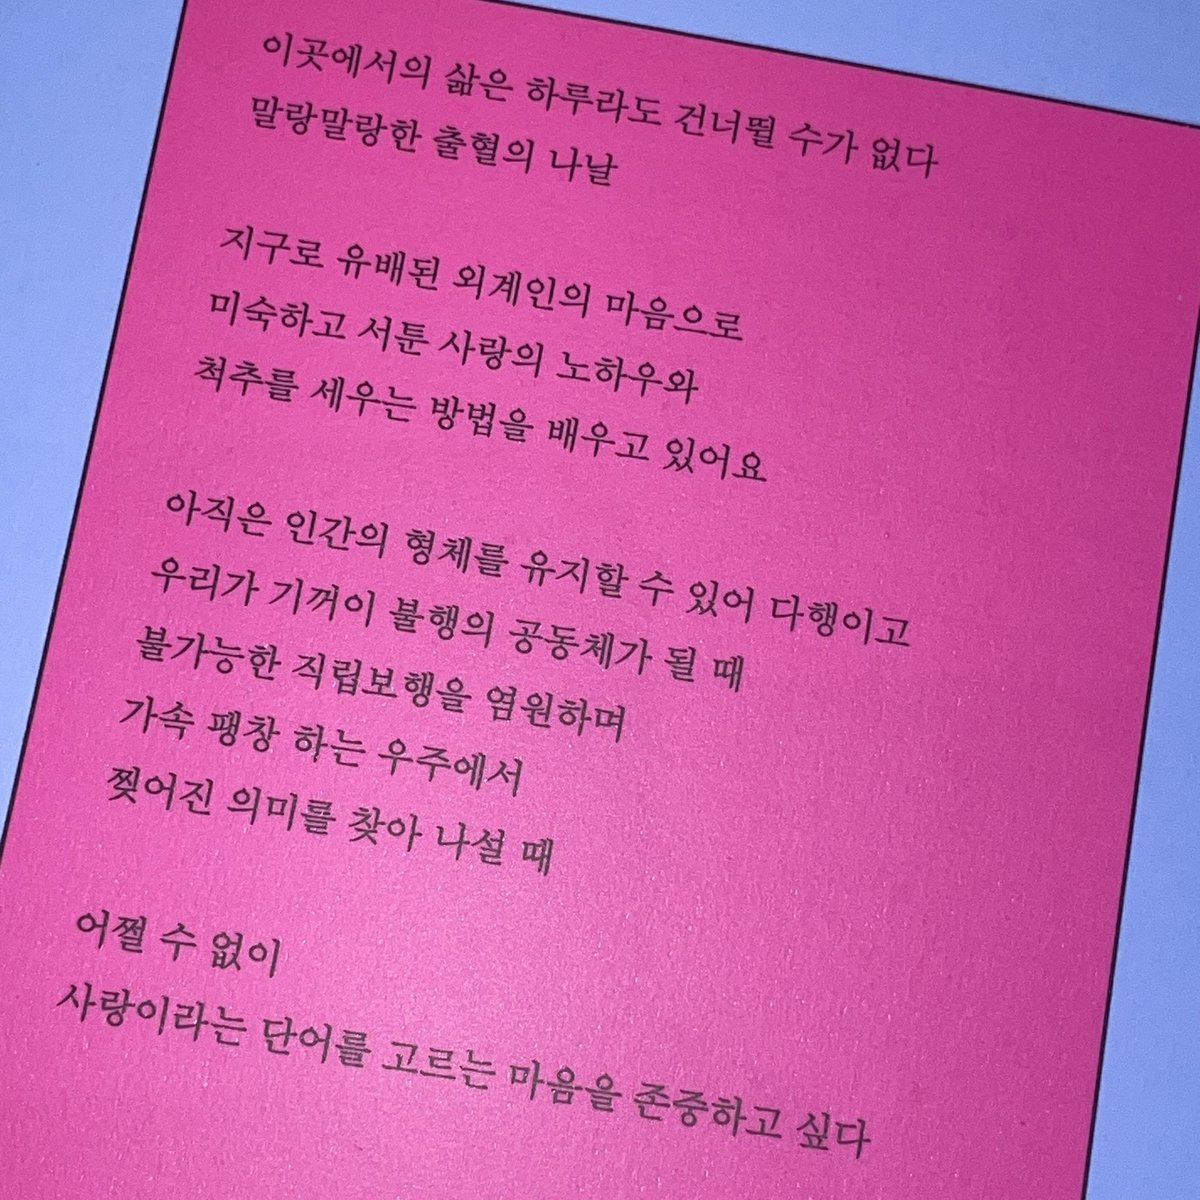 이곳에서의 삶은 하루라도 건너뛸 수가 없다
말랑말랑한 출혈의 나날
지구로 유배된 외계인의 마음으로
미숙하고 서툰 사랑의 노하우와
척추를 세우는 방법을 배우고 있어요
아직은 인간의 형체를 유지할 수 있어 다행이고
우리가 기꺼이 불행의 공동체가 될 때
불가능한 직립보행을 염원하며
가속 팽창 하는 우주에서
찢어진 의미를 찾아 나설 때
어쩔 수 없이
사랑이라는 단어를 고르는 마음을 존중하고 싶다